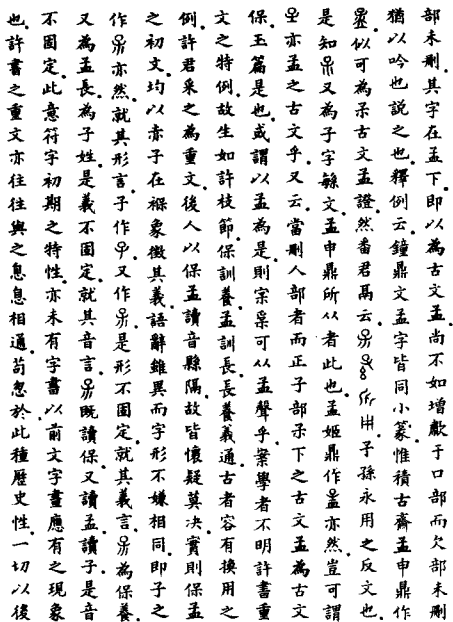 部未刪其字在孟下即以為古文孟尚不如增歗于口部而欠部未刪
猶以吟也說之也。釋例云鐘鼎文孟字皆同小篆惟積古齋孟申鼎作
似可為古文孟證然番君鬲云子孫永用之反文也。
是知又為子字文孟申鼎所从者此也。孟姬鼎作亦然。豈可謂
亦孟之古文乎。又云當刪人部者而正子部下之古文孟為古文
保。玉篇是也。或謂以孟為是則宗可从孟聲乎。案學者不明許書重
文之特例。故生如許枝節。保訓養孟訓長。長養義通。古者容有換用之
例。許君采之為重文。後人以保孟讀音縣隔。故皆懷疑莫决。實則保孟
之初文。均以赤子在褓象徵其義。語辭雖異而字形不嫌相同。即子之
作亦然。就其形言。子作又作是形不固定。就其義言。為保養。
又為孟長。為子姓。是義不固定。就其音言。既讀保又讀孟讀子。是音
不固定。此意符字初期之特性。亦未有字書以前文字畫應有之現象
也。許書之重文亦往往與之息息相通。苟忽於此種歷史性。一切以後